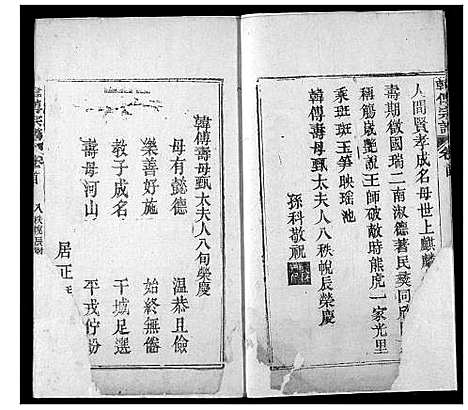 韓傅宗譜
人間賢孝成名母世上麒麟
壽期徵國瑞二南淑德著民彝同
稱觴歲艷說王師破敵時熊虎一家光里
乘班班玉笋映瑤池
韓傅壽母甄太夫人八秩帨辰榮慶
孫科敬祝
韓傅壽母甄太夫人八旬榮慶
母有懿德 溫恭且儉
樂善好施 始終無倦
教子成名 干城足選
壽母河山 平戎佇盼
居正
傅宗譜 卷首 八秩帨辰